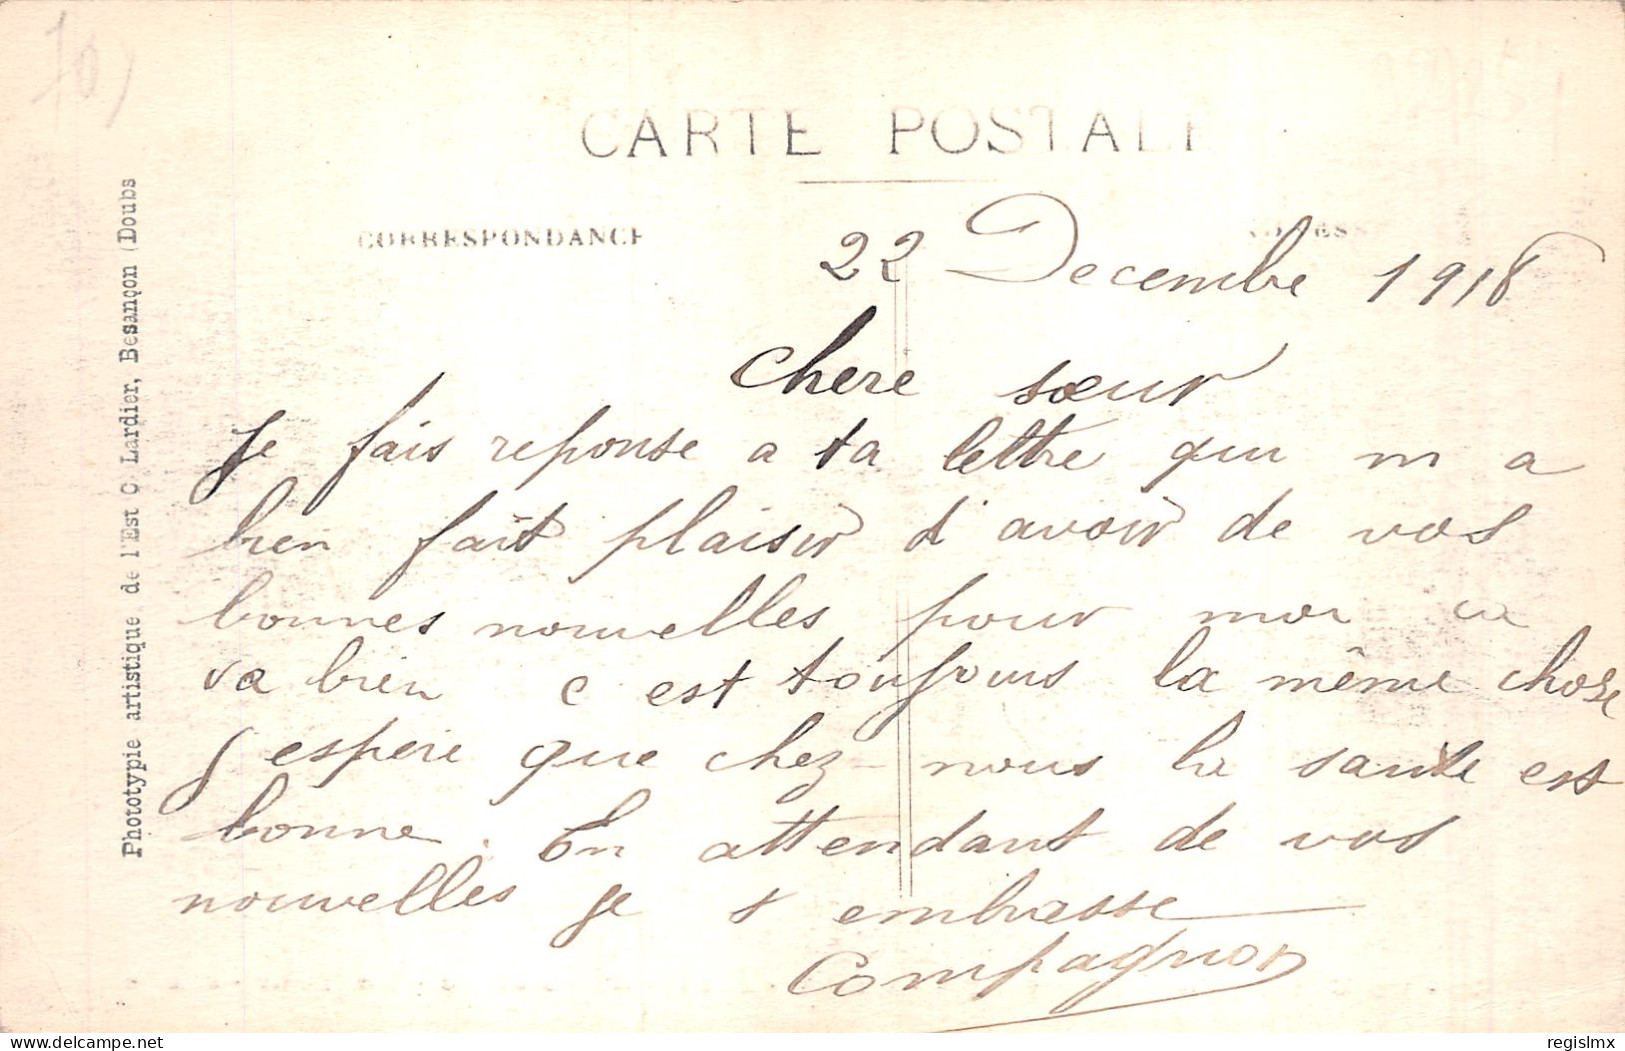 70)
CARTE POSTALE
CORRESPONDANCE
22 Decembre 1918
Chere sœur
Je fais reponse a ta lettre qui m a
bien fait plaisir d'avoir de vos
bonnes nouvelles pour moi ca
va bien c est toujours la même chose
j espere que chez nous la sante est
bonne. En attendant de vos
nouvelles je t embrasse
Compagnon
Phototypie artistique de l'Est C Lardier, Besançon (Doubs
delcampe.net
regislmx